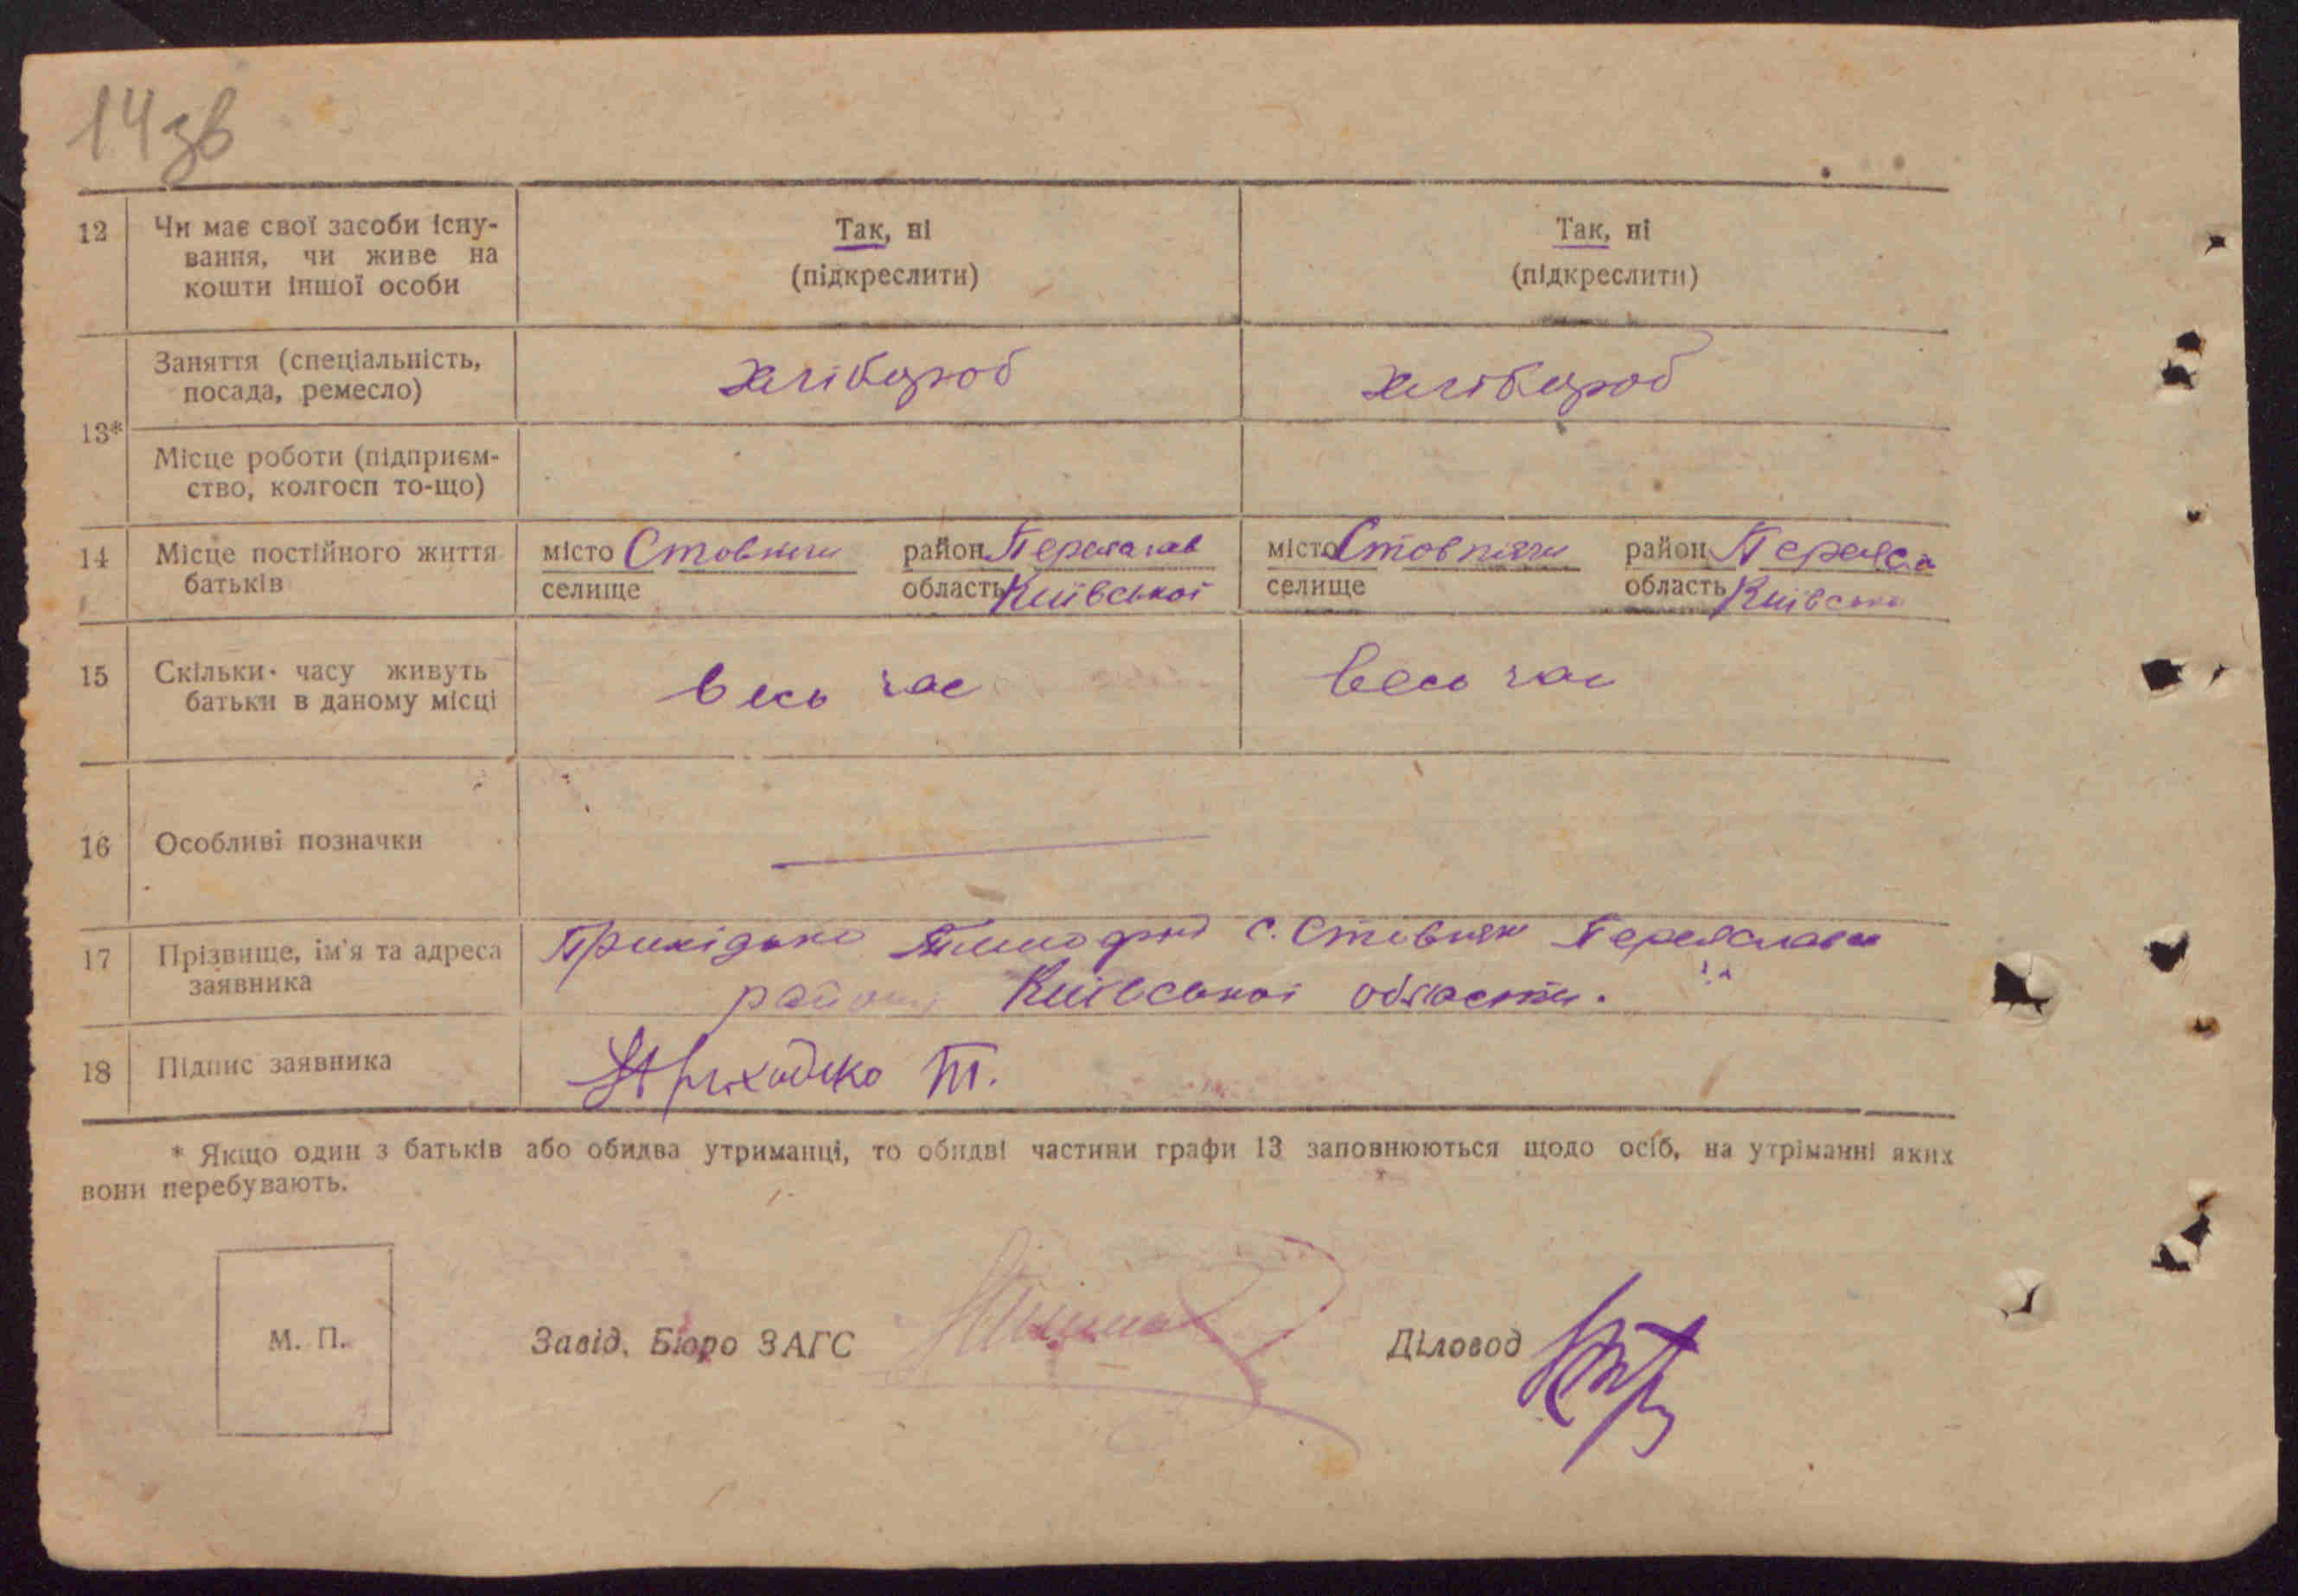 14зв
12 Чи має свої засоби існу-
вання, чи живе на
кошти іншої особи
Так, ні
(підкреслити)
Так, ні
(підкреслити)
13*
Заняття (спеціальність,
посада, ремесло)
хлібороб
хлібороб
Місце роботи (підприєм-
ство, колгосп то-що)
14 Місце постійного життя
батьків
місто Стовпяги район Переяслав
селище область Київської
місто Стовпяги район Переясла
селище область Київсько
15 Скільки часу живуть
батьки в даному місці
весь час
весь час
16 Особливі позначки
17 Прізвище, ім'я та адреса
заявника
Прихідько Тимофій с. Стовпяги Переяславськ
району Київської области.
18 Підпис заявника
Приходько Т.
* Якщо один з батьків або обидва утриманці, то обидві частини графи 13 заповнюються щодо осіб, на утріманні яких
вони перебувають.
М. П.
Завід. Бюро ЗАГС
Діловод